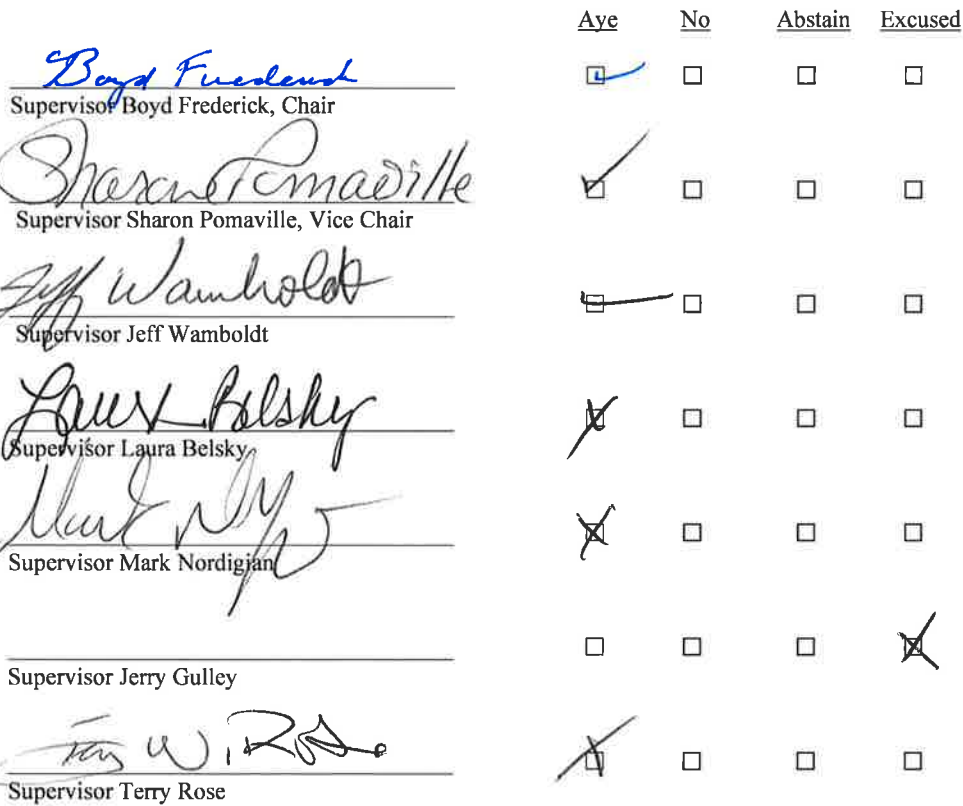 Aye No Abstain Excused
Boyd Frederick
Supervisor Boyd Frederick, Chair
Sharon Pomaville
Supervisor Sharon Pomaville, Vice Chair
Jeff Wamboldt
Supervisor Jeff Wamboldt
Laura Belsky
Supervisor Laura Belsky
Mark
Supervisor Mark Nordigian
Supervisor Jerry Gulley
Terry W. Rose
Supervisor Terry Rose